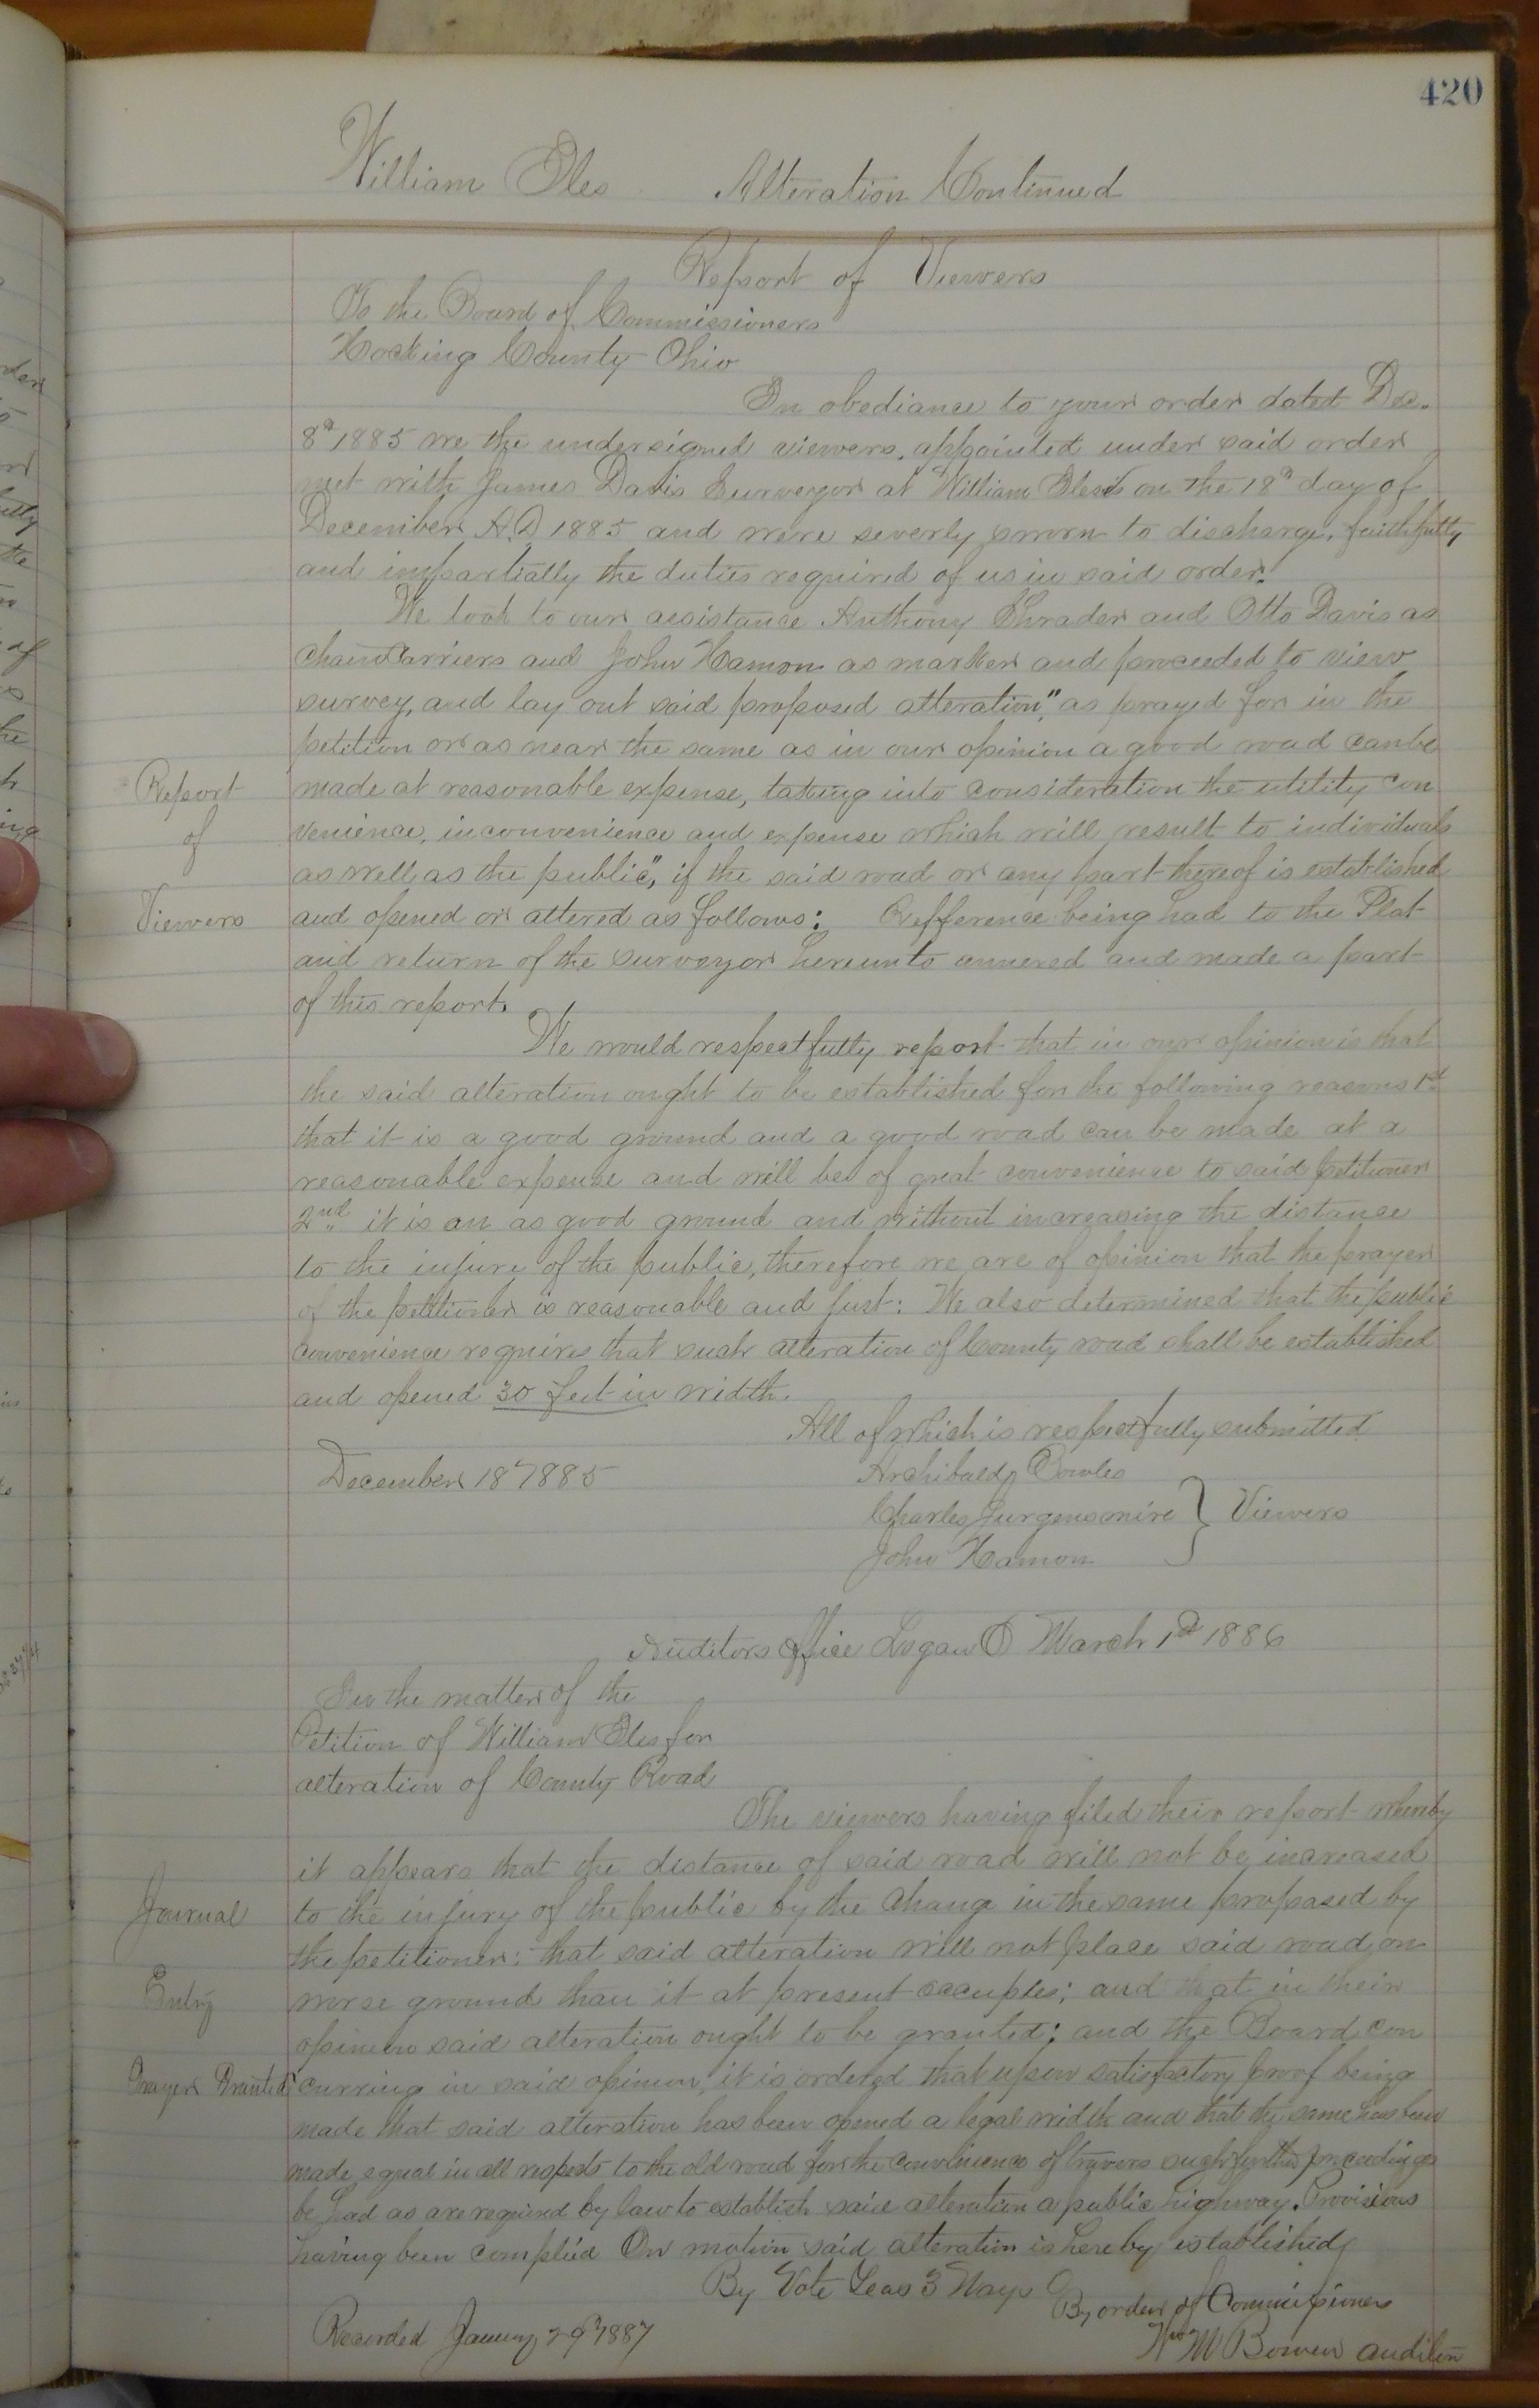 420
William Eles Alteration Continued
Report of Viewers
To the Board of Commissioners
Hocking County Ohio
In obediance to your order dated Dec.
8th 1885 we the undersigned viewers, appointed under said order
met with James Davis Surveyor at William Eles's on the 18th day of
December A.D 1885 and were severly sworn to discharge, faithfully,
and impartially the duties required of us in said order.
We took to our assistance Anthony Shrader and Otto Davis as
chain Carriers and John Hamon as marker and proceeded to view
survey, and lay out said proposed alteration," as prayed for in the
petition or as near the same as in our opinion a good road can be
Report
made at reasonable expense, taking into consideration the utility con
of
venience, inconvenience and expense which will result to individuals
as well as the public," if the said road or any part thereof is established
Viewers
and opened or altered as follows: Refference being had to the Plat
and return of the surveyor hereunto annexed and made a part
of this report.
We would respectfully report that in our opinion is that
the said alteration ought to be established for the following reasons 1st
that it is a good ground and a good road can be made at a
reasonable expense and will be of great convenience to said petitioner
2nd it is on as good ground and without increasing the distance
to the injure of the public, therefore we are of opinion that the prayer
of the petitioner is reasonable and just: We also determined that the public
convenience requires that such alteration of County road shall be established
and opened 30 feet in width.
All of which is respectfully submitted
December 18 1885
Archibald Cowles
Charles Jurgensmire } Viewers
John Hamon
Auditors Office Logan O March 1st 1886
In the matter of the
Petition of William Eles for
alteration of County Road
The viewers having filed their report whereby
it appears that the distance of said road will not be increased
Journal
to the injury of the public by the change in the same proposed by
the petitioner: that said alteration will not place said road on
Entry
worse ground than it at present occupies; and that in their
opinion said alteration ought to be granted; and the Board con
Prayer Granted
curring in said opinion, it is ordered that upon satisfactory proof being
made that said alteration has been opened a legal width and that the same has been
made equal in all respects to the old road for the convenience of travers such further proceedings
be had as are required by law to establish said alteration a public highway. Provisions
having been complied On motion said alteration is hereby established
By Vote Yeas 3 Nays 0
By order of Commissioners
Recorded January 29 1887
Wm M Bowen auditor